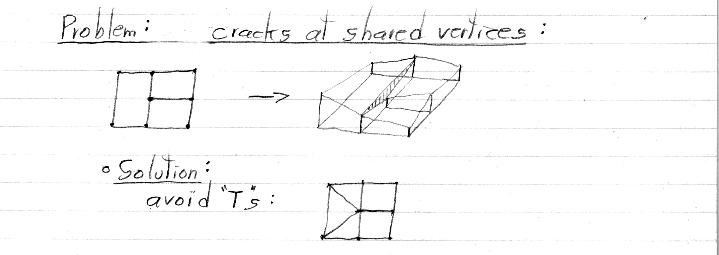 Problem: cracks at shared vertices:
Solution:
avoid "T"s: